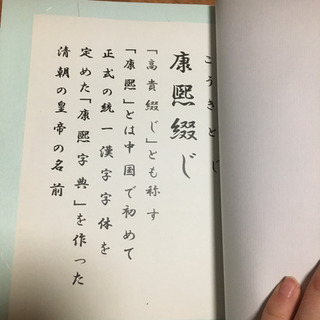 こうきとじ
康熙綴じ
「高貴綴じ」とも称す
「康熙」とは中国で初めて
正式の統一漢字字体を
定めた「康熙字典」を作った
清朝の皇帝の名前